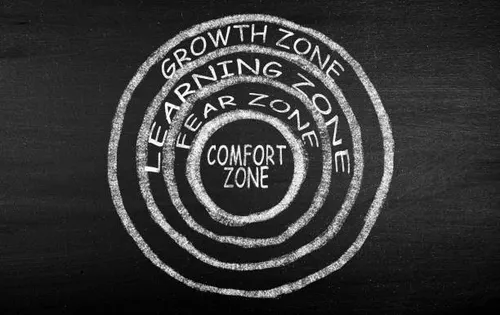 GROWTH ZONE
LEARNING ZONE
FEAR ZONE
COMFORT
ZONE